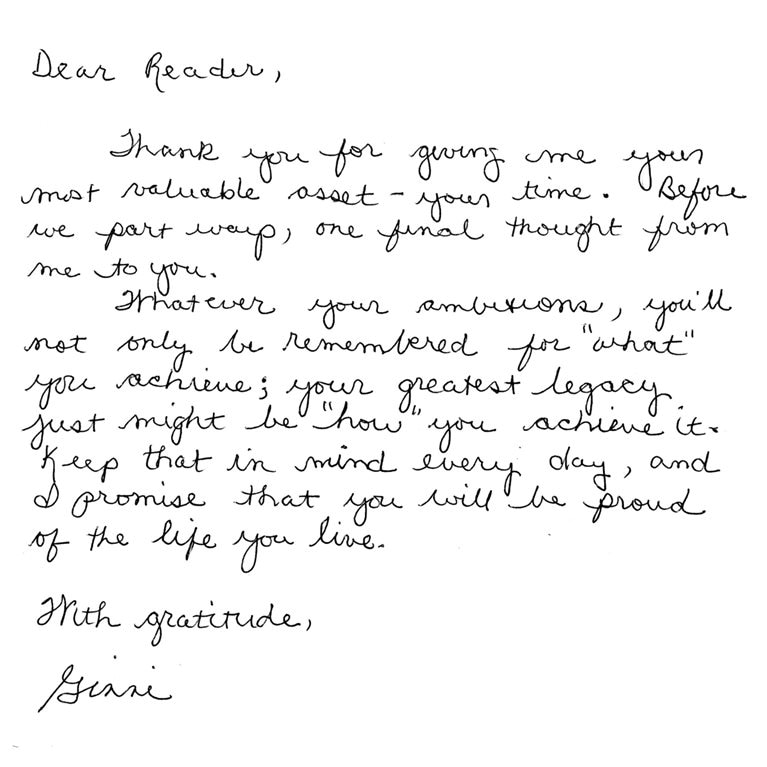 Dear Reader,
Thank you for giving me your
most valuable asset - your time. Before
we part ways, one final thought from
me to you.
Whatever your ambitions, you'll
not only be remembered for "what"
you achieve; your greatest legacy
just might be "how" you achieve it.
Keep that in mind every day, and
I promise that you will be proud
of the life you live.
With gratitude,
Ginni